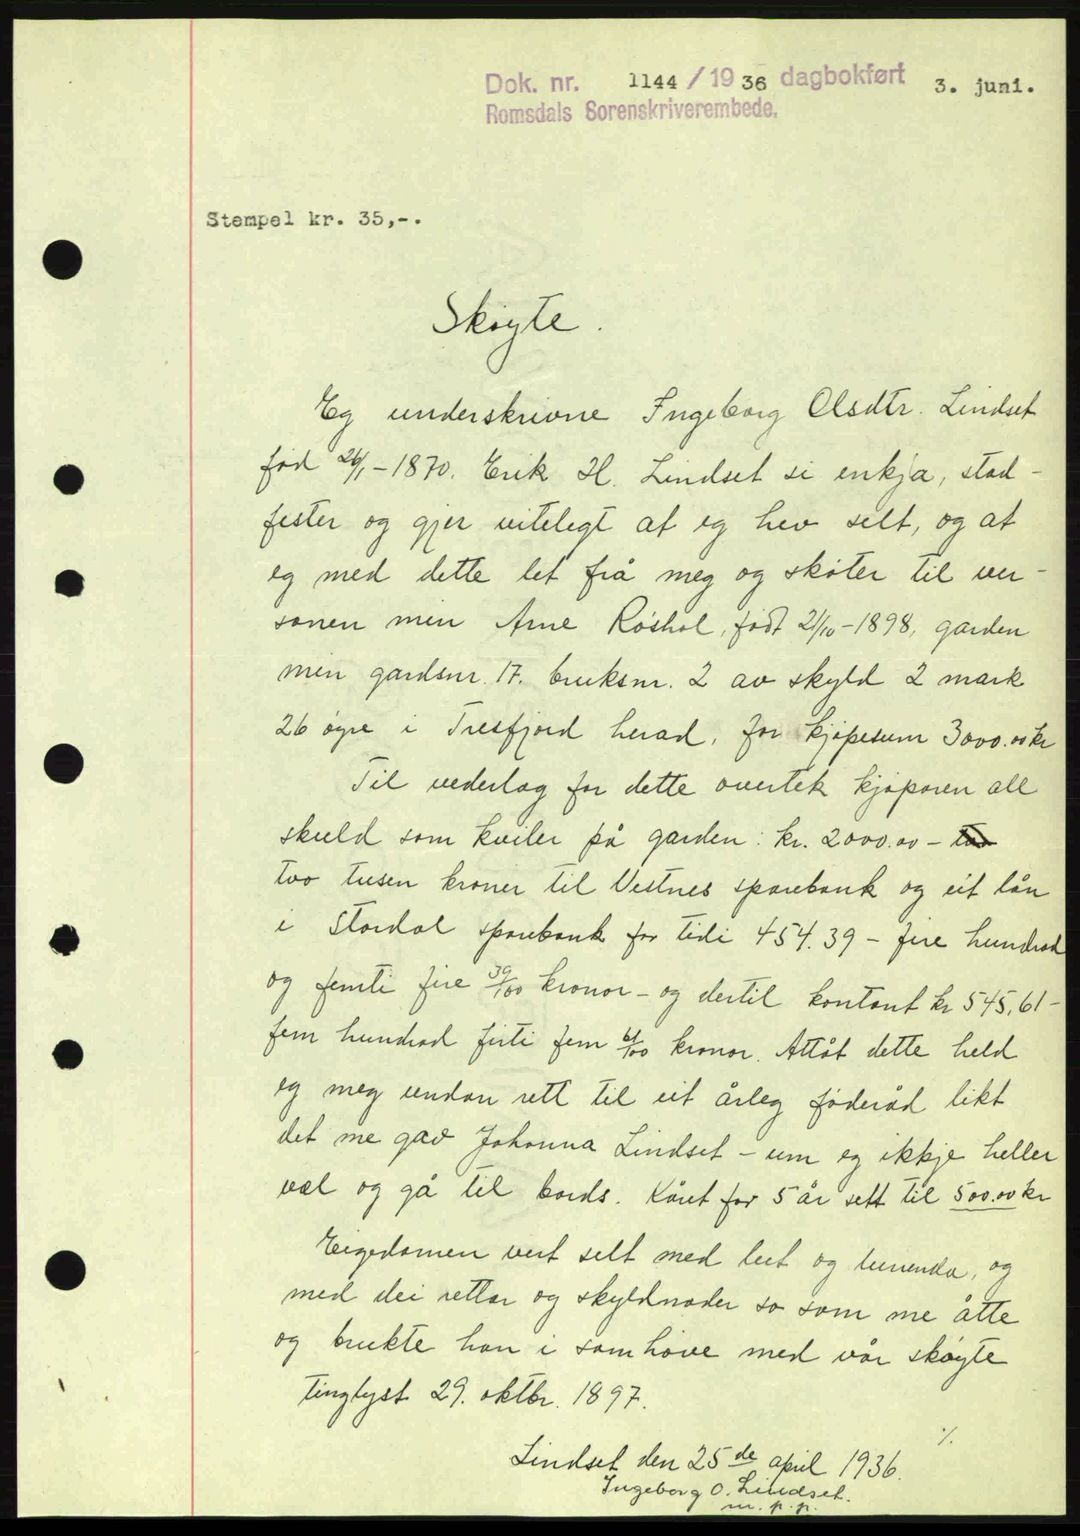 Dok. nr. 1144 / 19 36 dagbokført 3. juni.
Romsdals Sorenskriverembede.
Stempel kr. 35,-.
Skøyte.
Eg underskrivne Ingeborg Olsdtr. Lindset
fød 26/1-1870. Erik H. Lindset si enkja, stad-
fester og gjer viteleg at eg hev selt, og at
eg med dette let frå meg og skøter til ver-
sonen min Arne Røshol, født 21/10-1898, garden
min gardsnr. 17. bruksnr. 2 av skyld 2 mark
26 øyre i Tresfjord herad, for kjøpesum 3000.00 kr
Til vederlag for dette overtek kjøparen all
skuld som kviler på garden: kr. 2000.00 -
tvo tusen kroner til Vestnes sparebank og eit lån
i Stordal sparebank for tidi 454.39 - fire hundrad
og femti fire 39/100 kronor - og dertil kontant kr 545,61-
fem hundrad firti fem 61/100 kronor. Attåt dette held
eg meg undan rett til eit årleg føderåd likt
det me gav Johanna Lindset - um eg ikkje heller
vel og gå til bords. Kåret for 5 år sett til 500.00 kr
Eigedomen vert selt med lut og lunenda, og
med dei rettar og skyldnader so som me åtte
og brukte han i samhøve med vår skøyte
tinglyst 29. oktbr. 1897.
./.
Lindset den 25de april 1936.
Ingeborg O. Lindset.
m. p. p.